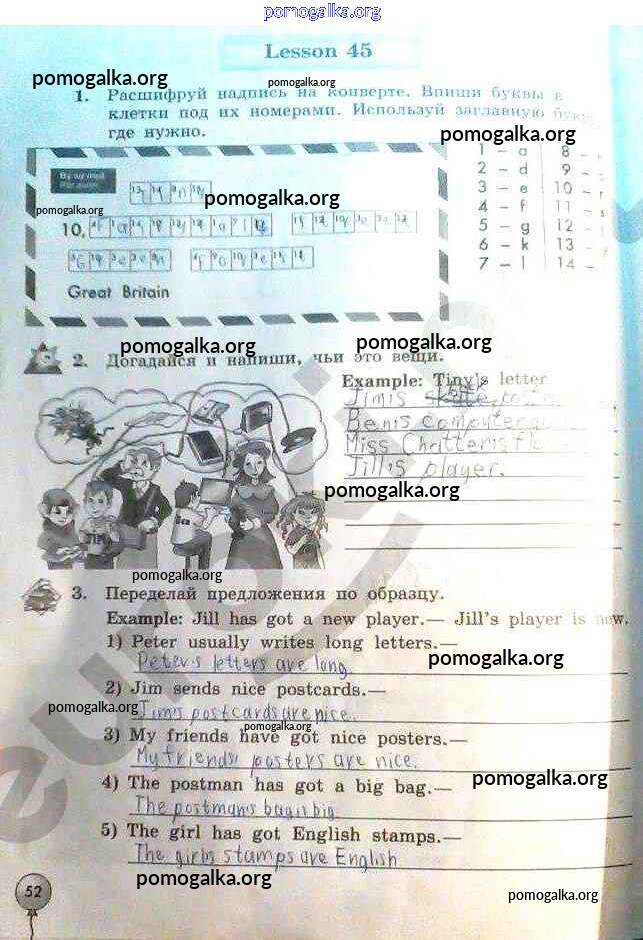 pomogalka.org
Lesson 45
pomogalka.org
pomogalka.org
1. Расшифруй надпись на конверте. Впиши буквы в
клетки под их номерами. Используй заглавную
где нужно.
pomogalka.org
1 – a 8 –
2 – d 9 –
3 – e 10 –
4 – f 11 –
5 – g 12 –
6 – k 13 –
7 – l 14 –
By air mail
Par avion
pomogalka.org
pomogalka.org
10,
Great Britain
pomogalka.org
pomogalka.org
2. Догадайся и напиши, чьи это вещи.
Example: Tiny's letter
Jim's
Ben's computer
Miss Chatter's
Jill's player.
JIM
pomogalka.org
pomogalka.org
3. Переделай предложения по образцу.
Example: Jill has got a new player.— Jill's player is new.
1) Peter usually writes long letters.—
Peter's letters are long
pomogalka.org
2) Jim sends nice postcards.—
pomogalka.org
Jim's postcards are nice.
pomogalka.org
3) My friends have got nice posters.—
My friends' posters are nice.
pomogalka.org
4) The postman has got a big bag.—
The postman's bag is big
5) The girl has got English stamps.—
The girls stamps are English
pomogalka.org
52
pomogalka.org